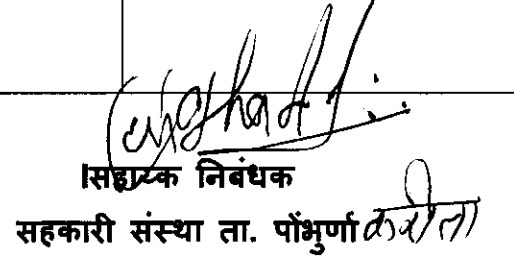 सहाय्यक निबंधक
सहकारी संस्था ता. पोंभुर्णा करीता